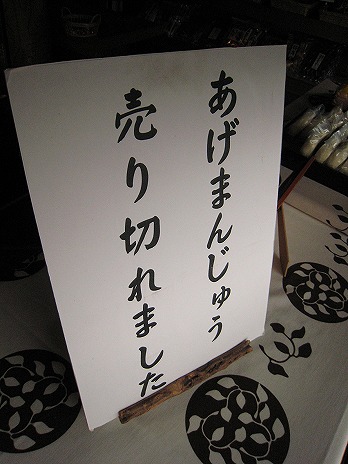 あげまんじゅう
売り切れました